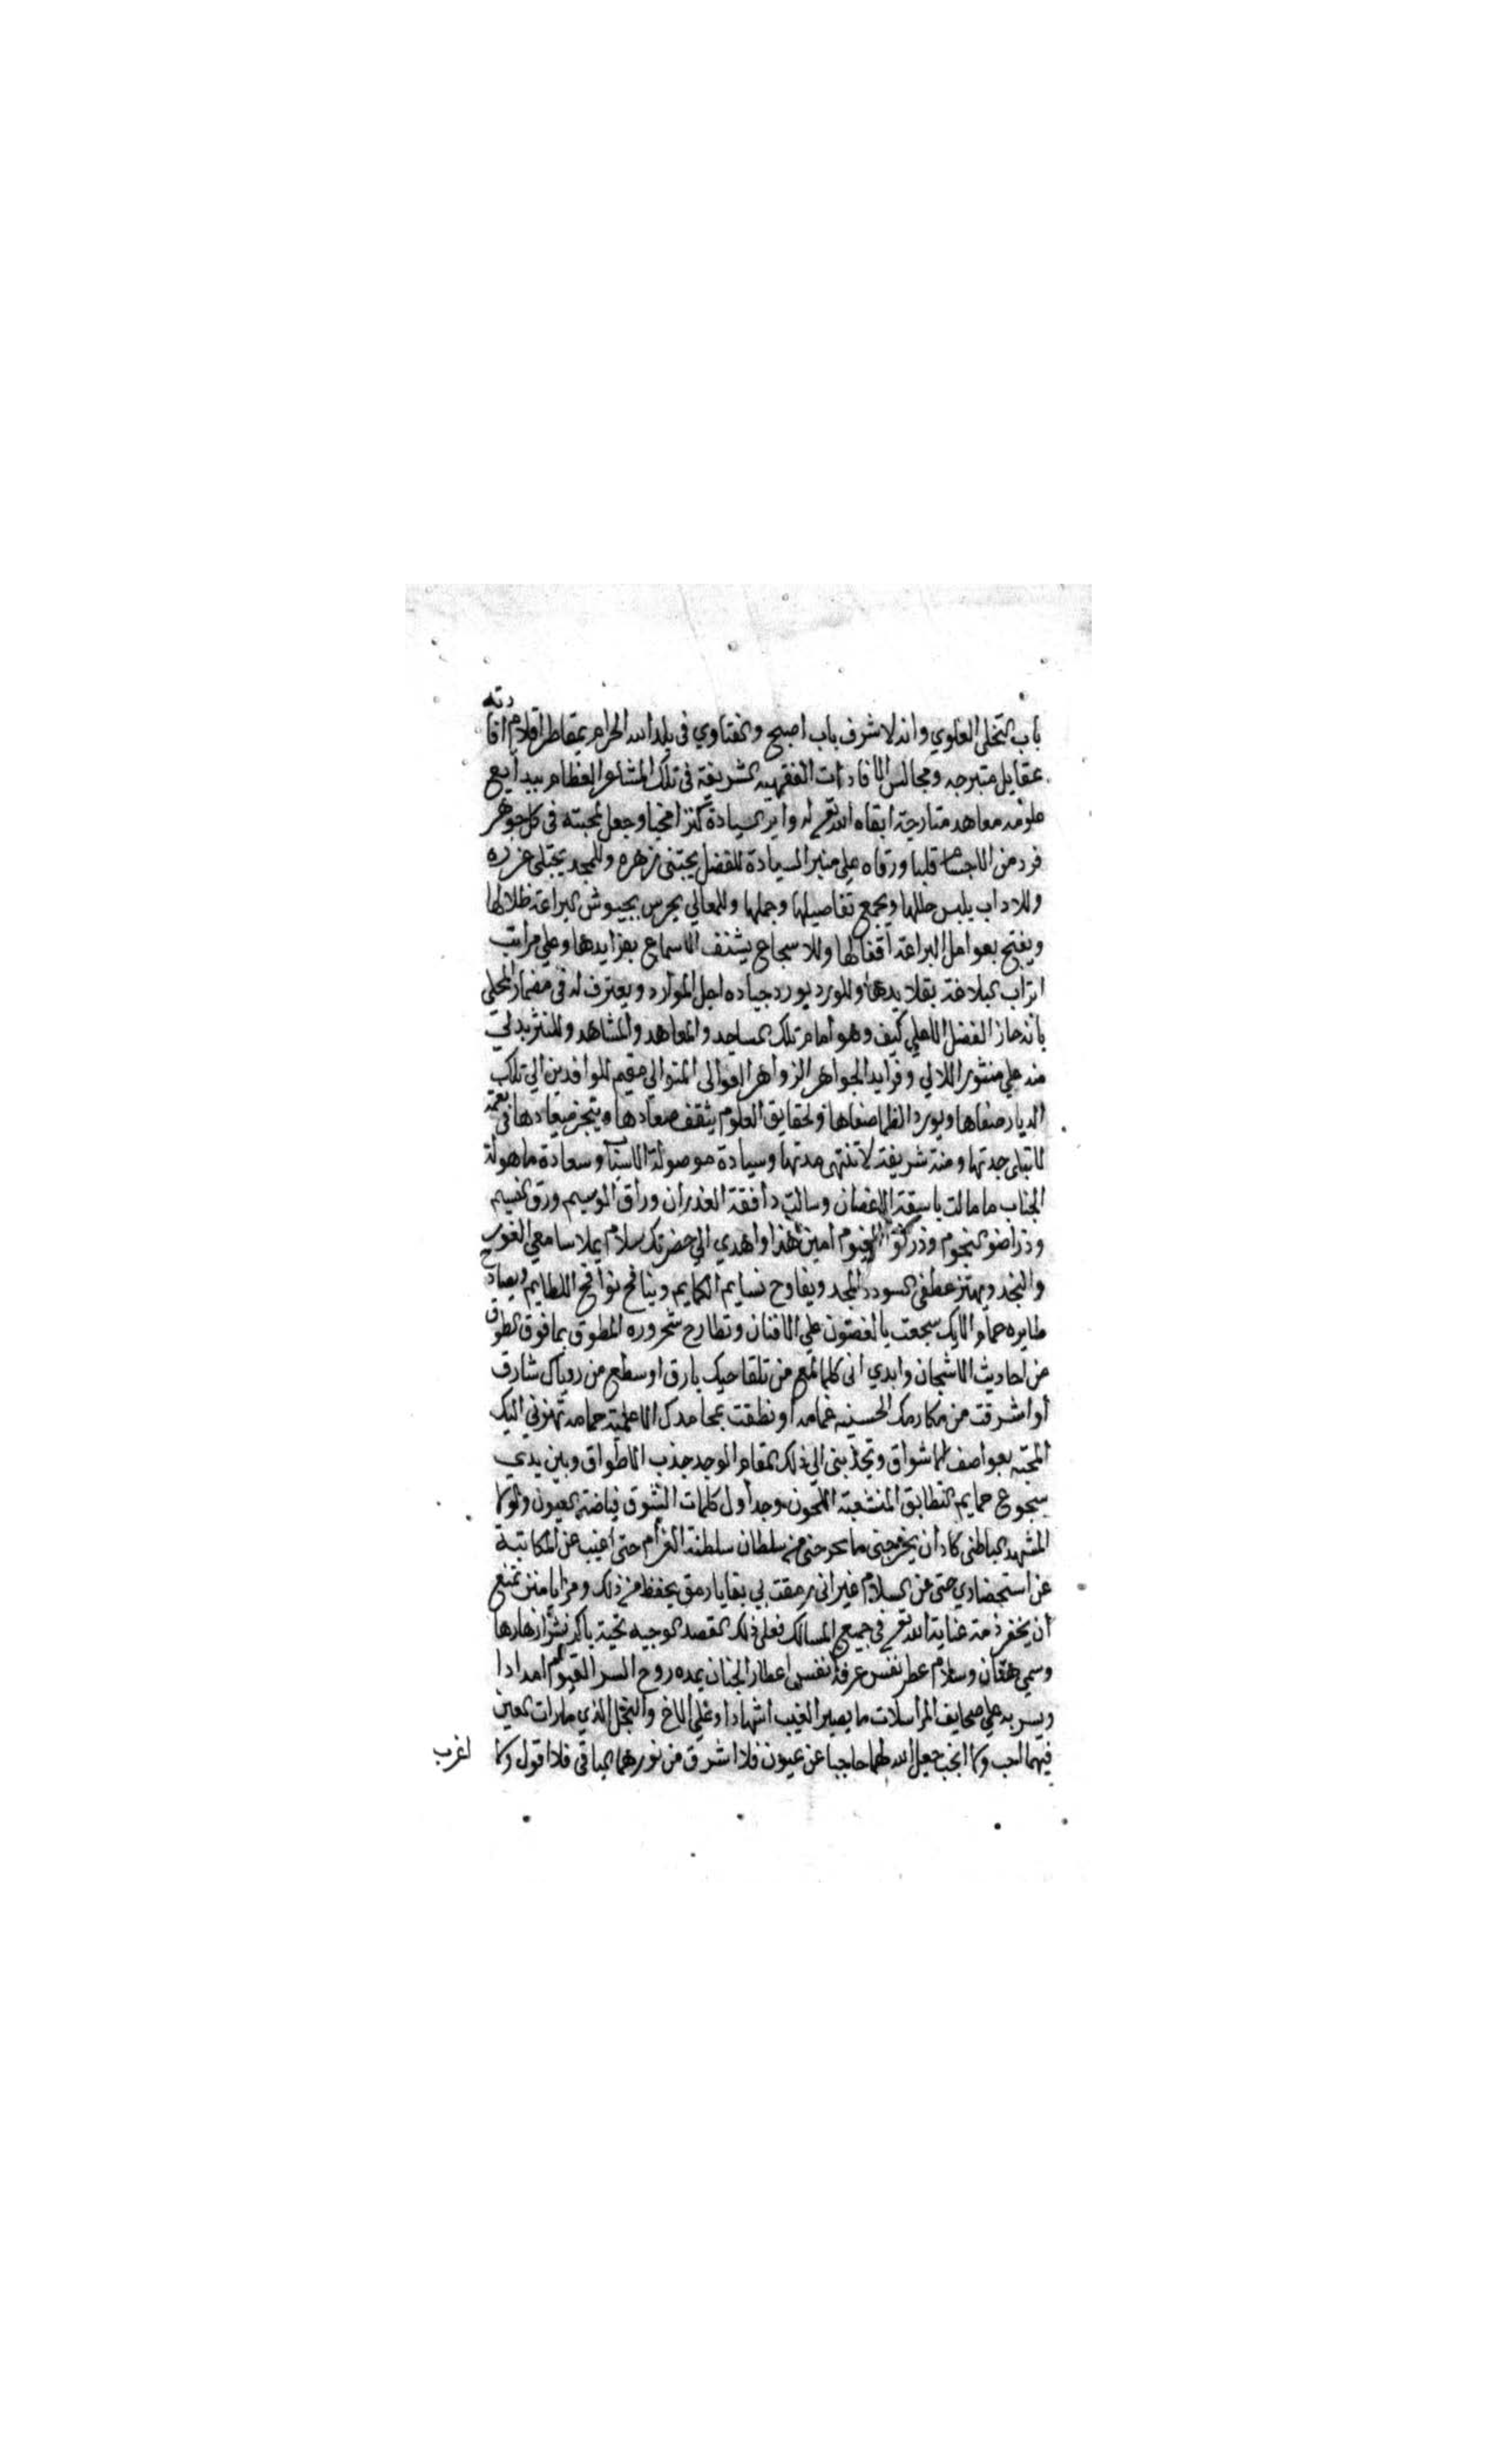 باب التخلي العلوي وانه لاشرف باب اصبح والفتاوي في بلد الله الحرام بمقاطر اقلام افادته
عقايل متبرجه ومجالس الافادات الفقهيه الشريفة في تلك المشاعر العظام ببدايع
علومه معاهد متارجة ابقاه الله تعالى له واثر السيادة كنزا مخبيا وجعل لمحبته في كل جوهر
فرد من الاجسام قلبا ورقاه على منبر السيادة للفضل يجتني زهره وللمجد يجتلى غرره
وللاداب يلبس حللها ويجمع تفاصيلها وجملها وللمعالي يحرس بجيوش البراعة ظلالها
ويفتح بعوامل البراعة اقفالها وللاسجاع يشنف الاسماع بفرايدها وعلى مراتب
اتراب البلاغة بقلايدها وللورد يورد جياده اجل الموارد ويعترف له في مضمار المحلى
بانه حاز الفضل الاعلى كيف وهو امام تلك المساجد والمعاهد والمشاهد وللنثر يدلي
منه على منثور اللالي وفرايد الجواهر الزواهر الغوالي المتوالي مقيم للوافدين الي تلك
الديار صفاها ويورد الظما صفاها ولحقايق العلوم يثقف صعادها وينجز ميعادها في نعمة
لا تبلى جدتها ومنة شريفة لا تنتهي مدتها وسيادة موصولة الاسباب وسعادة ماهولة
الجناب ما مالت باسقة الاغصان وسالت دافقة الغدران وراق الوسيم ورق النسيم
وذرا ضو النجوم وذر الغيوم امين هذا واهدي الى حضرتك سلام يملا سامعي الغور
والنجد ويهتز عطفي السودد المجد ويفاوح نسايم الكمايم وينافح نوافح اللطايم ويصادح
طايره حمام الايك سجعت بالغصون على الافنان وتطارح شحروره المطوق بما فوق الطوق
من احاديث الاشجان وابدي اني كلما لمع من تلقا حيك بارق او سطع من روياك شارق
أو اشرقت من مكارمك الحسنيه غمامه او نطقت بمحامدك الاعلمية حمامه تهزني اليك
المحبه بعواصف الاشواق وتجذبني الي ذلك المقام الوجد جذب الاطواق وبين يدي
سجوع حمايم التطابق المنشعبة اللحون وجداول كلمات الشوق فياضة العيون ولولا
المشهد الباطني كاد أن يخرجني ما يحرجني من سلطان سلطنة الغرام حتى اغيب عن المكاتبة
عن استحضادي حتى عن السلام غير اني رمقت بي بقايا رمق يحفظ من ذلك ومزايا منن تمنع
أن يخفر ذمة عناية الله تعالى في جميع المسالك فعلى ذلك القصد الوجيه تحية باكر نشر ازهارها
وسمي هتان وسلام عطر نفس عرفه انفس اعطار الجنان يمده روح السر القيوم امدادا
ويسر به على صحايف المراسلات ما يصير الغيب اشهادا وعلى الاخ والنجل الذي ما رات العين
فيهما احب ولا انجب جعل الله لهما حاجبا عن عيون فلا اشرق من نورهما الباقي فلا اقول ولا
اغرب